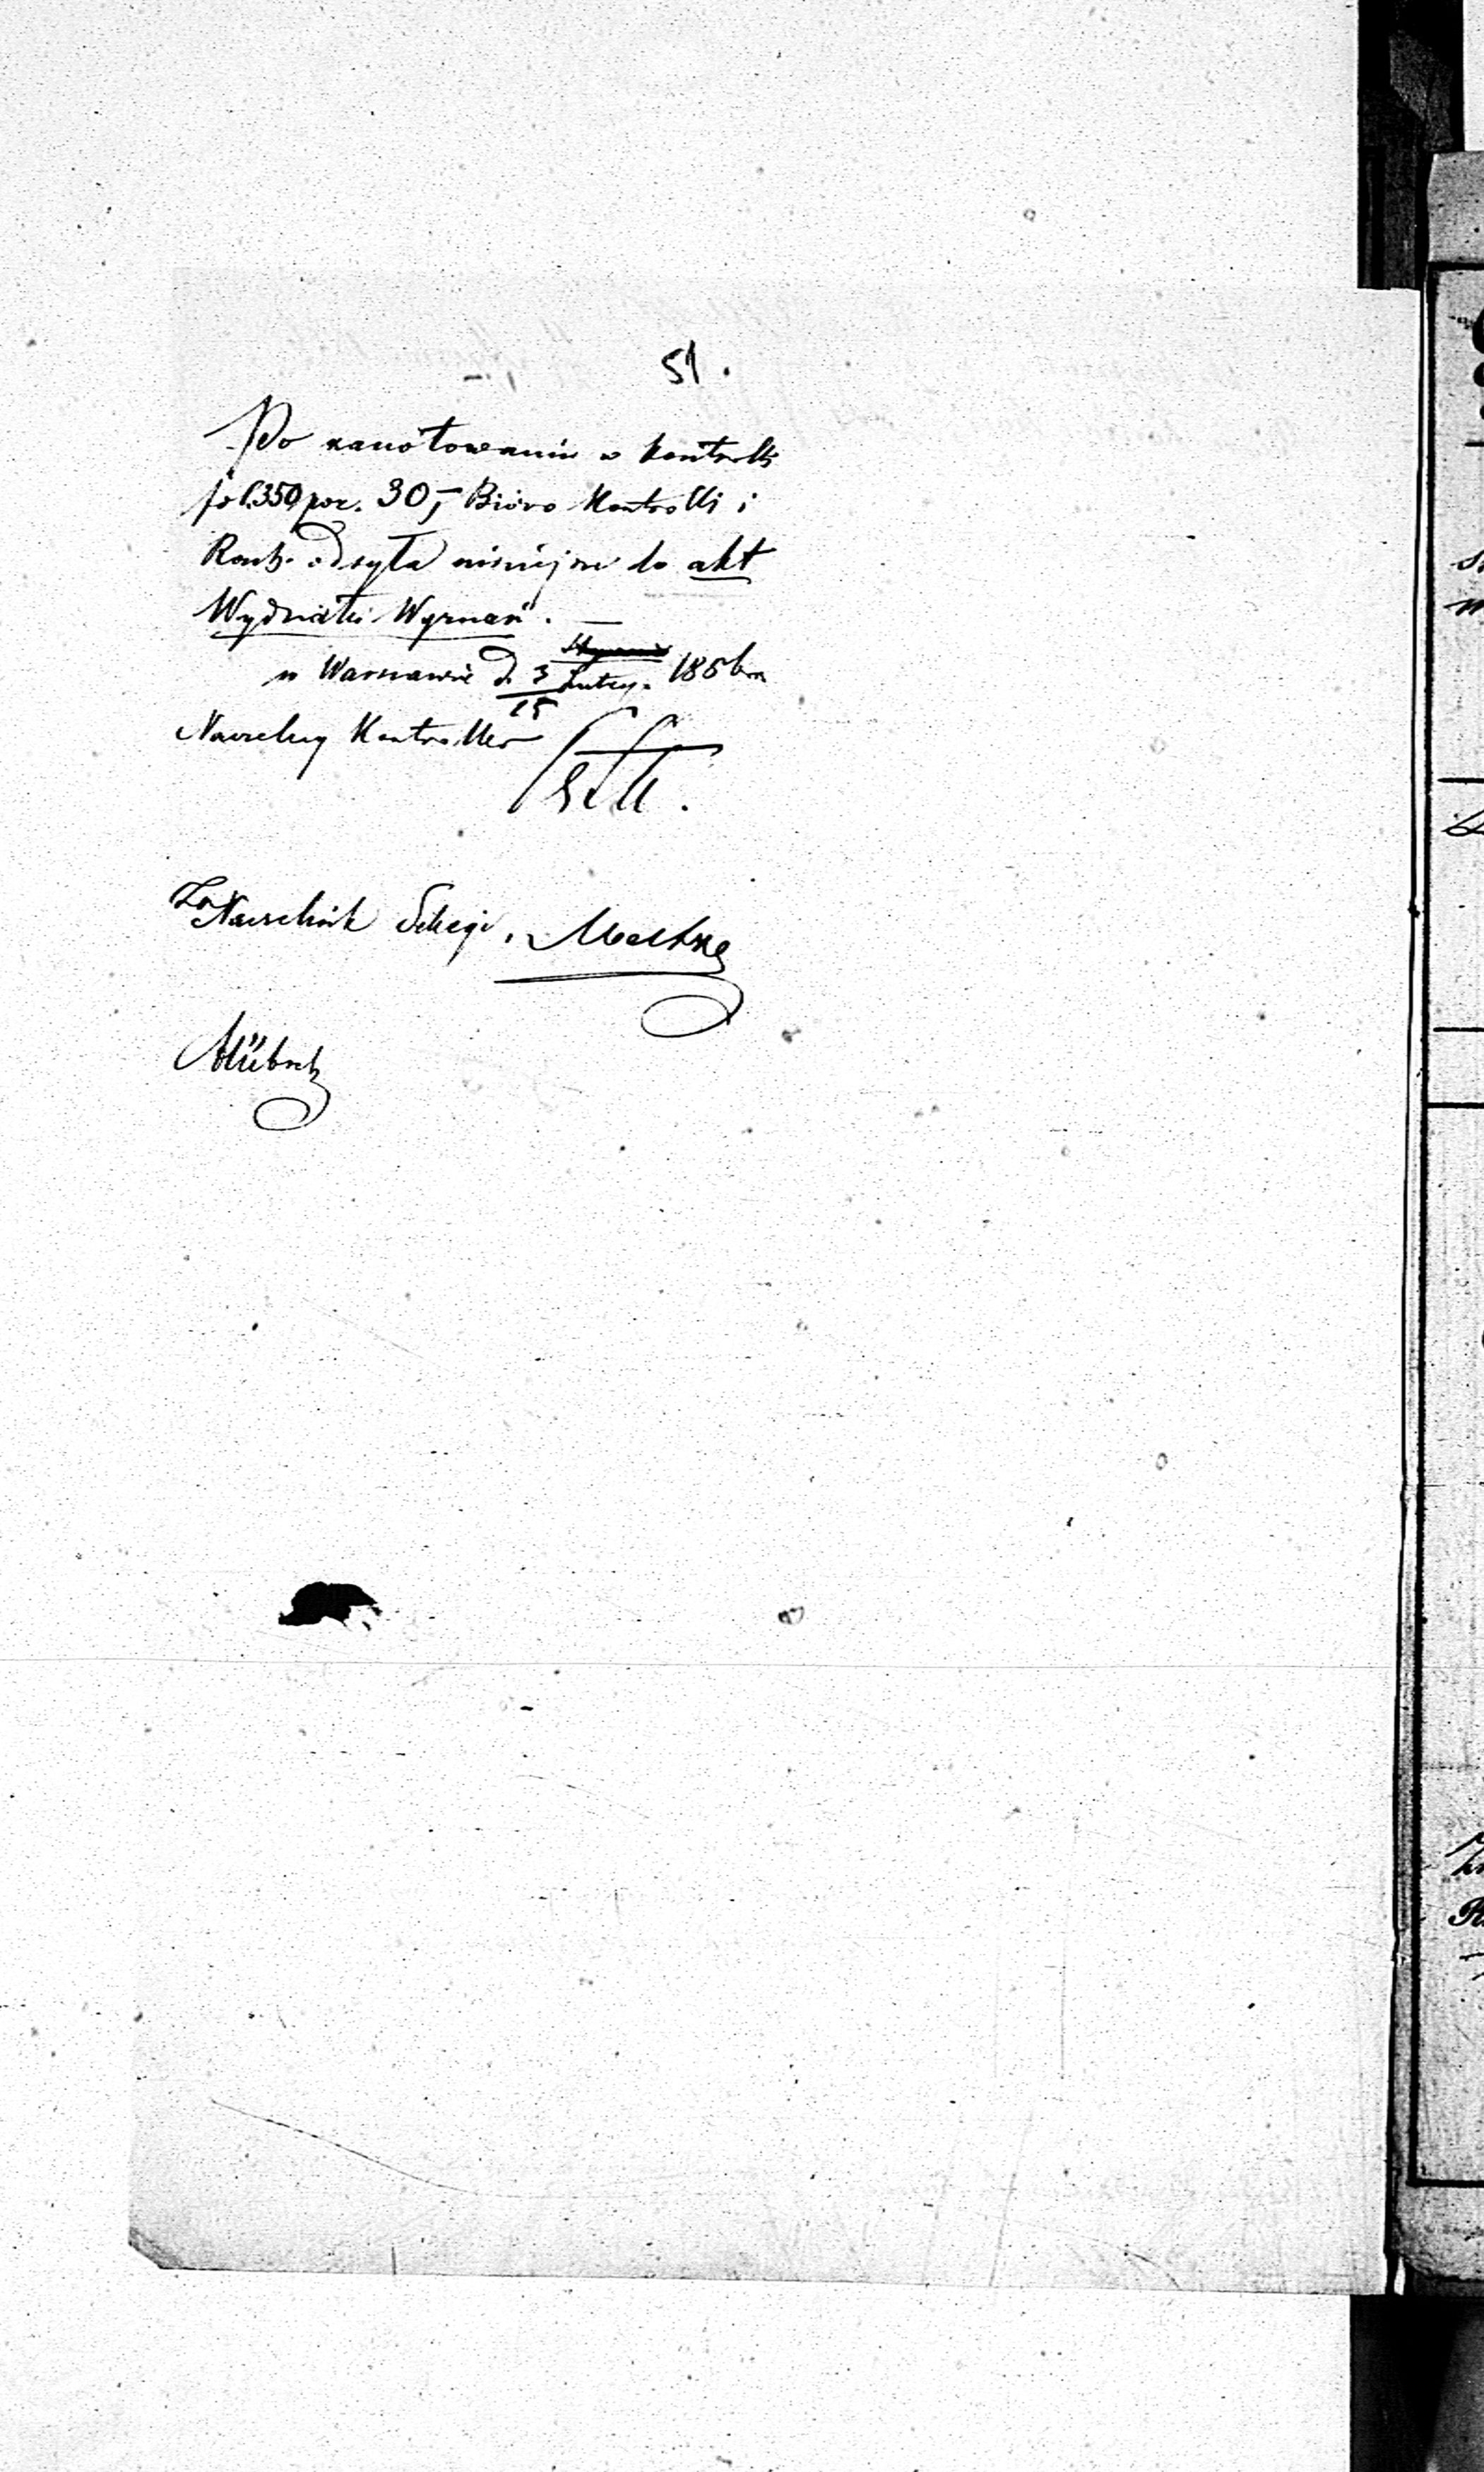 51.
Po zanotowaniu w kontrolli
fol. 350 poz. 30,– Bióro Kontrolli i
Rach. odsyła niniejsze do akt
Wydziału Wyznań. —
w Warszawie d. 3/15 Lutego 186
Naczelny Kontroller
Za Naczelnik Sekcyi,